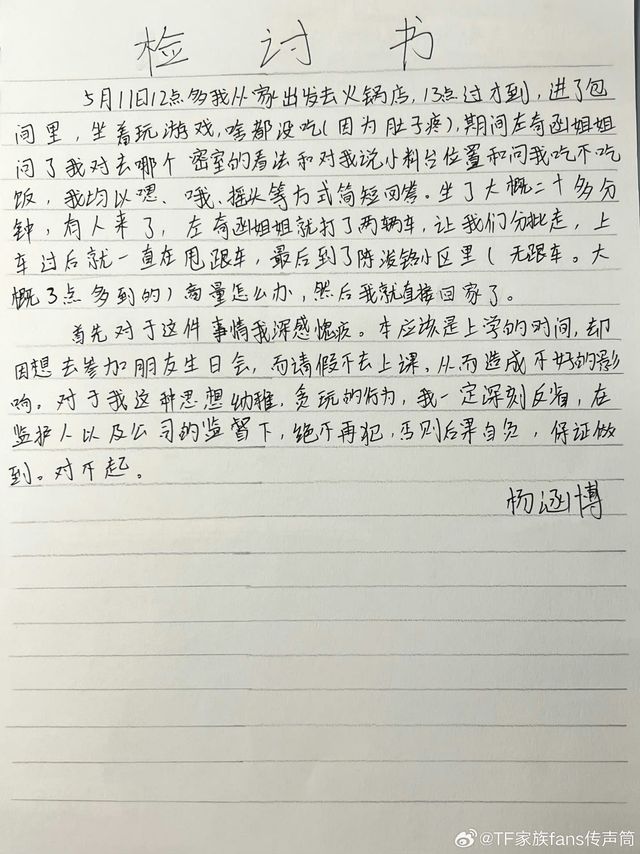 检讨书
5月11日12点多我从家出发去火锅店，13点过才到，进了包
间里，坐着玩游戏，啥都没吃（因为肚子疼），期间左奇函姐姐
问了我对去哪个密室的看法和对我说小料台位置和问我吃不吃
饭，我均以嗯、哦、摇头等方式简短回答。坐了大概二十多分
钟，有人来了，左奇函姐姐就打了两辆车，让我们分批走，上
车过后就一直在甩跟车，最后到了陈浚铭小区里（无跟车。大
概3点多到的）商量怎么办，然后我就直接回家了。
首先对于这件事情我深感愧疚。本应该是上学的时间，却
因想去参加朋友生日会，而请假不去上课。从而造成不好的影
响。对于我这种思想幼稚，贪玩的行为，我一定深刻反省，在
监护人以及公司的监督下，绝不再犯，否则后果自负，保证做
到。对不起。
杨涵博
@TF家族fans传声筒